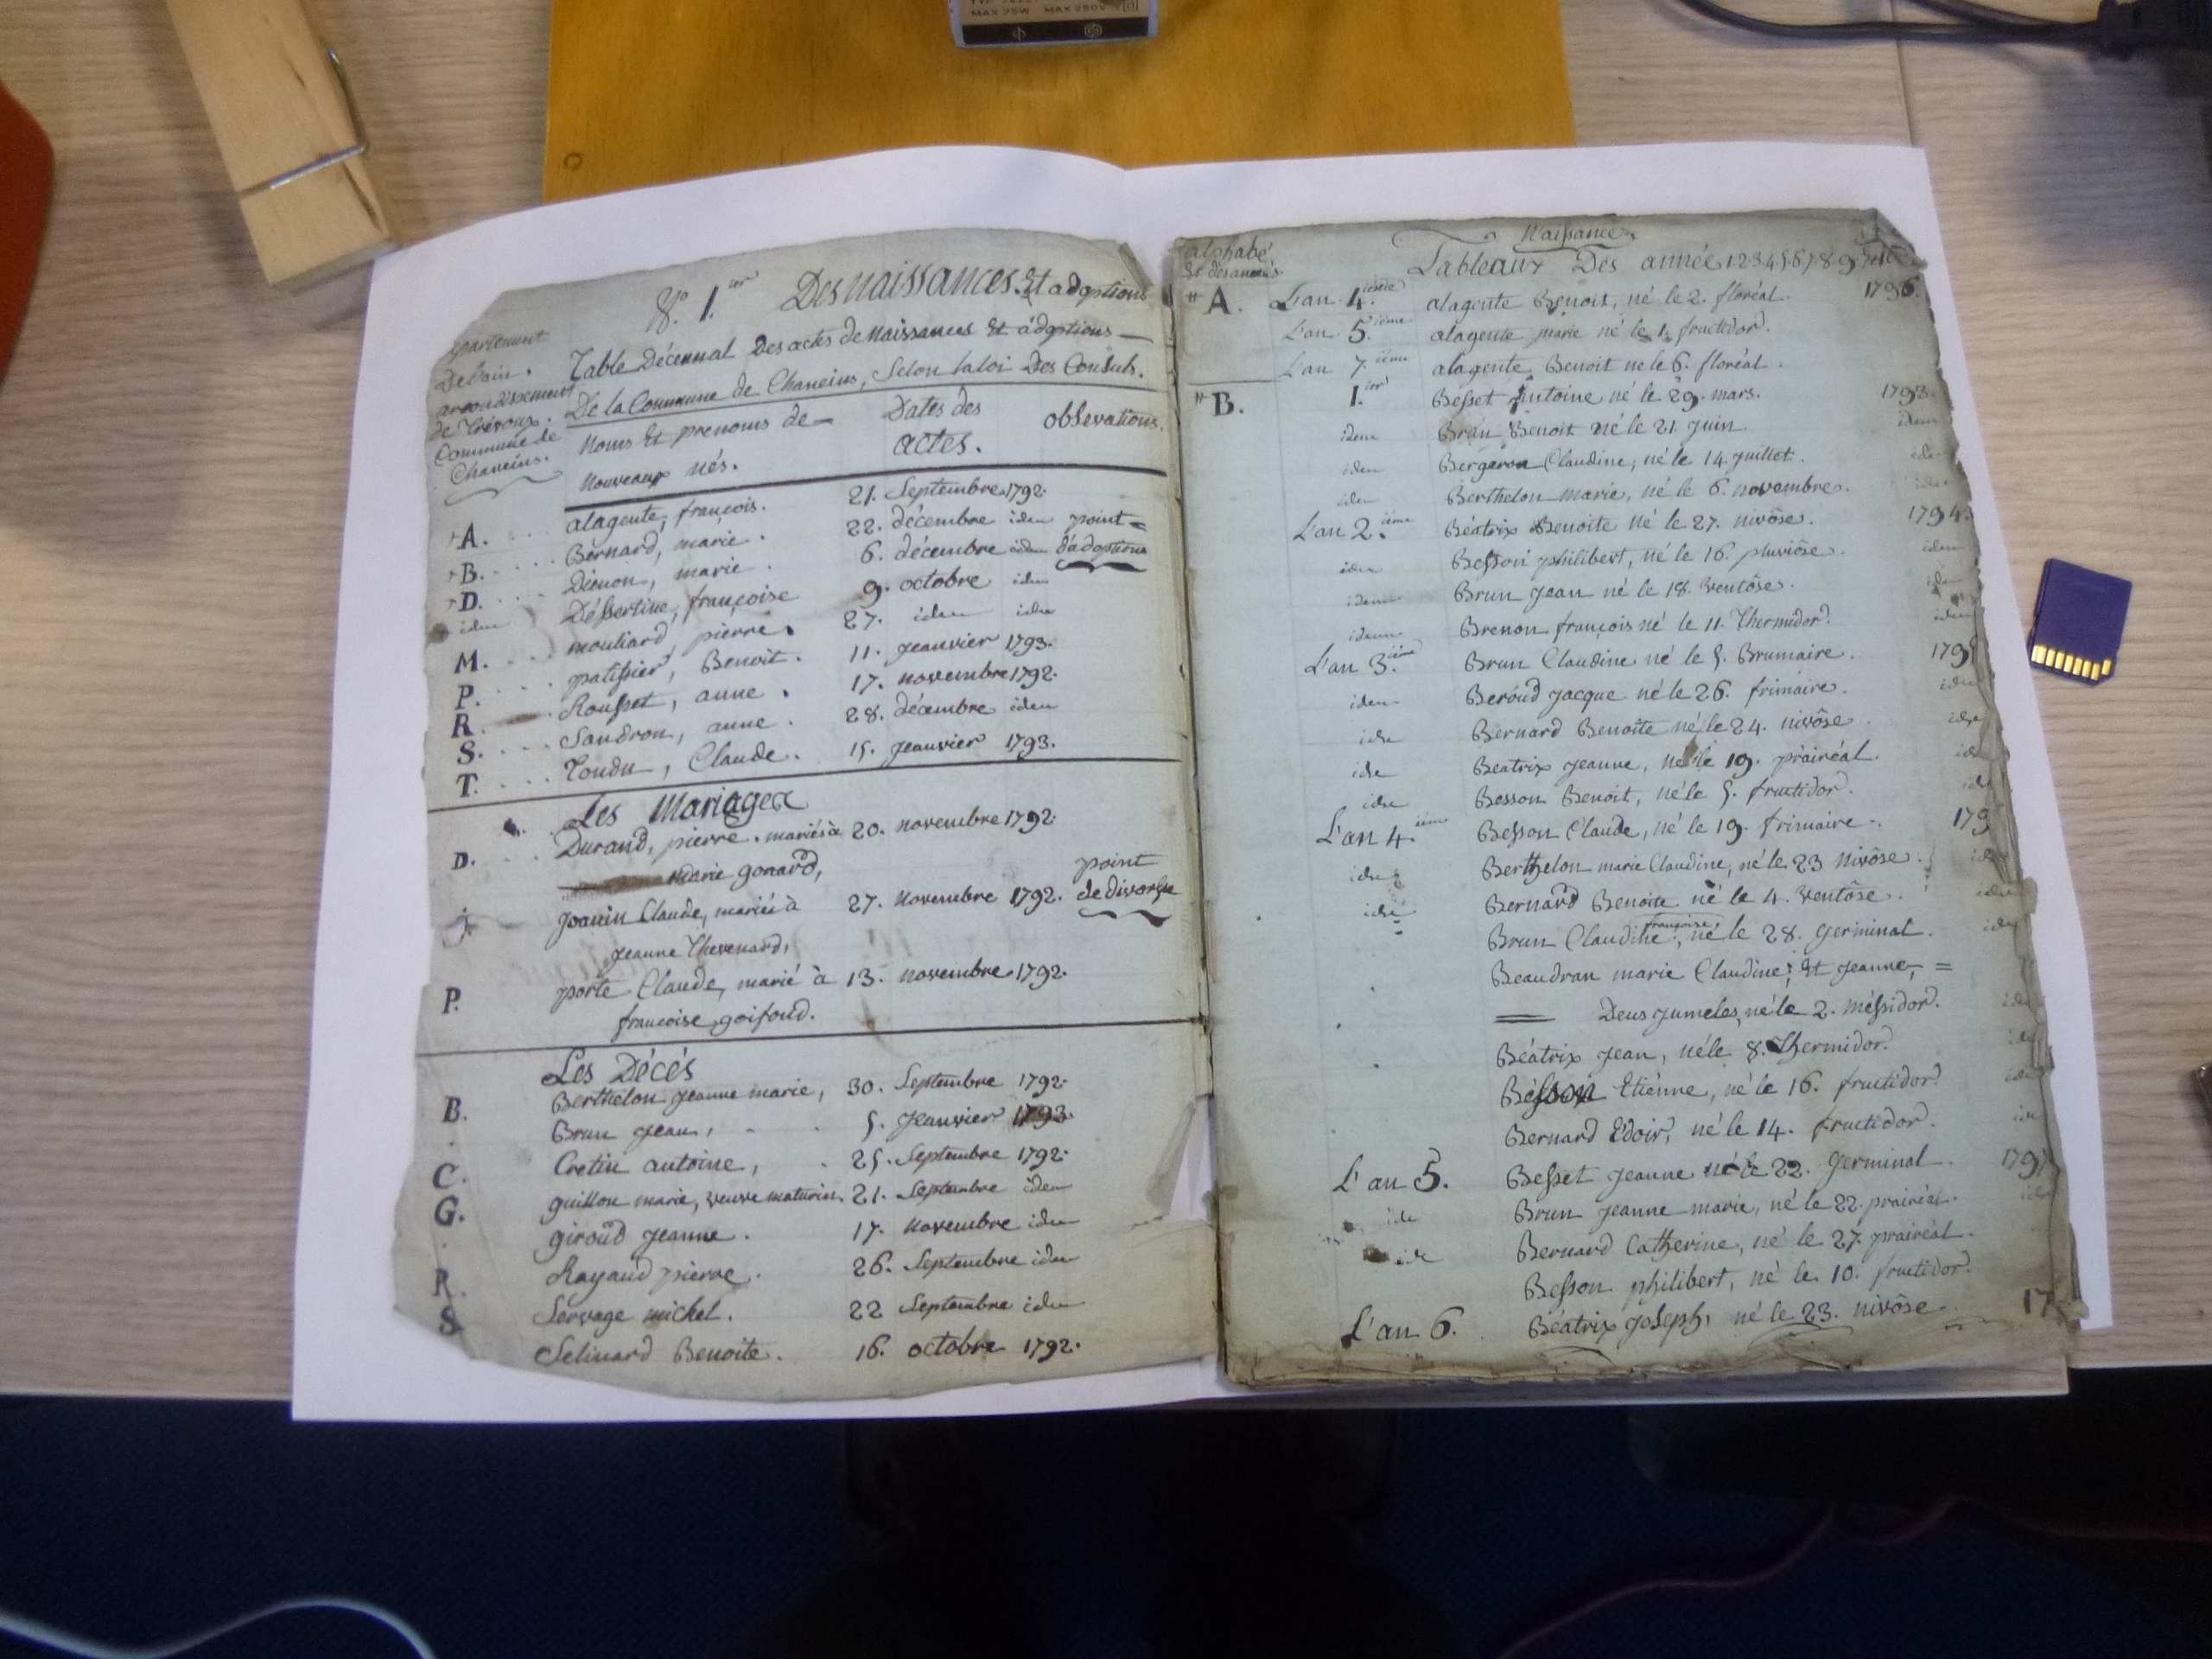 MAX 25W MAX 250V
N.º 1.ier Des naissances. Et adoptions
Table Décennal Des actes de Naissances Et adoptions
De la Commune de Chaneins, Selon la loi Des Consuls.
partement
De l'ain.
arrondissement
de Trévoux.
Commune de
Chaneins.
Noms Et prenoms de
Nouveaux nés.
Dates des
actes.
obsevations.
A. alagente, françois. 21. Septembre 1792.
B. Bernard, marie. 22. décembre idem point =
D. marie. 6. décembre idem d'adoptions
idem Déssertine, françoise 9. octobre idem
M. mouliard pierre. 27. idem idem
P. patissier, Benoit. 11. jeanvier 1793.
R. Rousset, anne. 17. novembre 1792.
S. Sandron, anne. 28. décembre idem
T. Tondu, Claude. 15. jeanvier 1793.
Les Mariages
D. Durand, pierre. mariés à 20. novembre 1792.
marie gonard,
J. joanin Claude, mariés à 27. Novembre 1792.
point
de divorsse
jeanne Thevenard,
P. porte Claude, marié à 13. novembre 1792.
françoise goifond.
Les Décés
B. Berthelon jeanne marie, 30. Septembre 1792.
Brun jean, 5. jeanvier 1793.
C. Cretin antoine, 25. Septembre 1792.
G. guillon marie, veuve maturin. 21. Septembre idem
giroud jeanne. 17. novembre idem
R. Rayaud pierre. 26. Septembre idem
S. Servage michel. 22 Septembre idem
Selinard Benoite. 16. octobre 1792.
alphabé
Et des années
Naissances
Tableaux Des année 1 2 3 4 5 6 7 8 9
A. L'an 4. alagente Benoit, né le 2. floréal. 1796.
L'an 5.ième alagente marie né le 1. fructidor.
L'an 7.ième alagente Benoit né le 6. floréal.
B. 1.ier Besset antoine né le 29. mars. 1793.
idem Brun Benoit né le 21 juin. idem
idem Bergeron Claudine, né le 14. juillet. idem
idem Berthelon marie, né le 6. novembre. idem
L'an 2.ième Béatrix Benoite né le 27. nivôse. 1794.
idem Besson philibert, né le 16. pluviôse. idem
idem Brun jean né le 18. ventôse. idem
idem Brenon françois né le 11. Thermidor. idem
L'an 3.ième Brun Claudine né le 5. Brumaire. 179
idem Beroud jacque né le 26. frimaire. idem
idem Bernard Benoite né le 24. nivôse. idem
idem Beatrix jeanne, né le 19. prairéal. idem
idem Besson Benoit, né le 5. fructidor. idem
L'an 4.ième Besson Claude, né le 19. frimaire. 179
idem Berthelon marie Claudine, né le 23 Nivôse. idem
idem Bernard Benoite né le 4. ventôse. idem
françoise,
Brun Claudine, né le 28. germinal. idem
Beaudran marie Claudine; Et jeanne, =
= Deus jumeles, né le 2. méssidor. idem
Béatrix jean, né le 8. Thermidor.
Bésson Etiénne, né le 16. fructidor. idem
Bernard Edoir, né le 14. fructidor. ide
L'an 5. Besset jeanne né le 22. Germinal. 179
ide Brun jeanne marie, né le 22. prairéal. ide
ide Bernard Catherine, né le 27. prairéal.
Besson philibert, né le 10. fructidor.
L'an 6. Béatrix joseph, né le 23. nivôse. 17